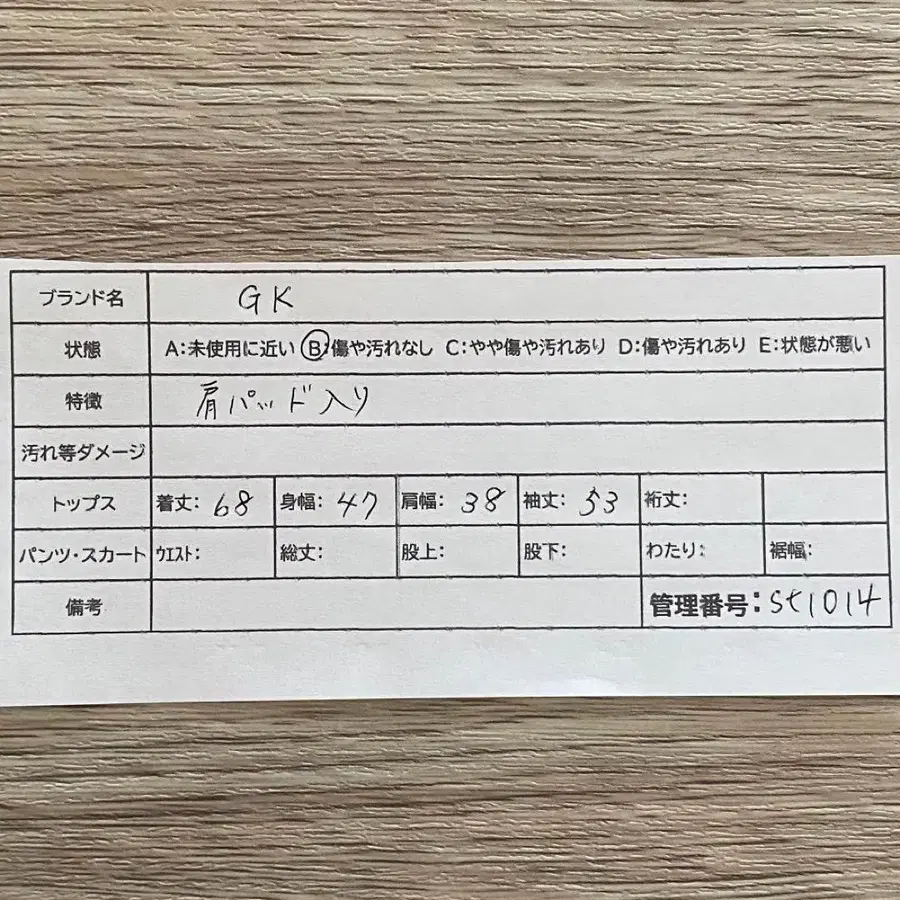 ブランド名 GK
状態 A:未使用に近い B:傷や汚れなし C:やや傷や汚れあり D:傷や汚れあり E:状態が悪い
特徴 肩パッド入り
汚れ等ダメージ
トップス 着丈: 68 身幅: 47 肩幅: 38 袖丈: 53 裄丈:
パンツ・スカート ウエスト: 総丈: 股上: 股下: わたり: 裾幅:
備考 管理番号: st1014